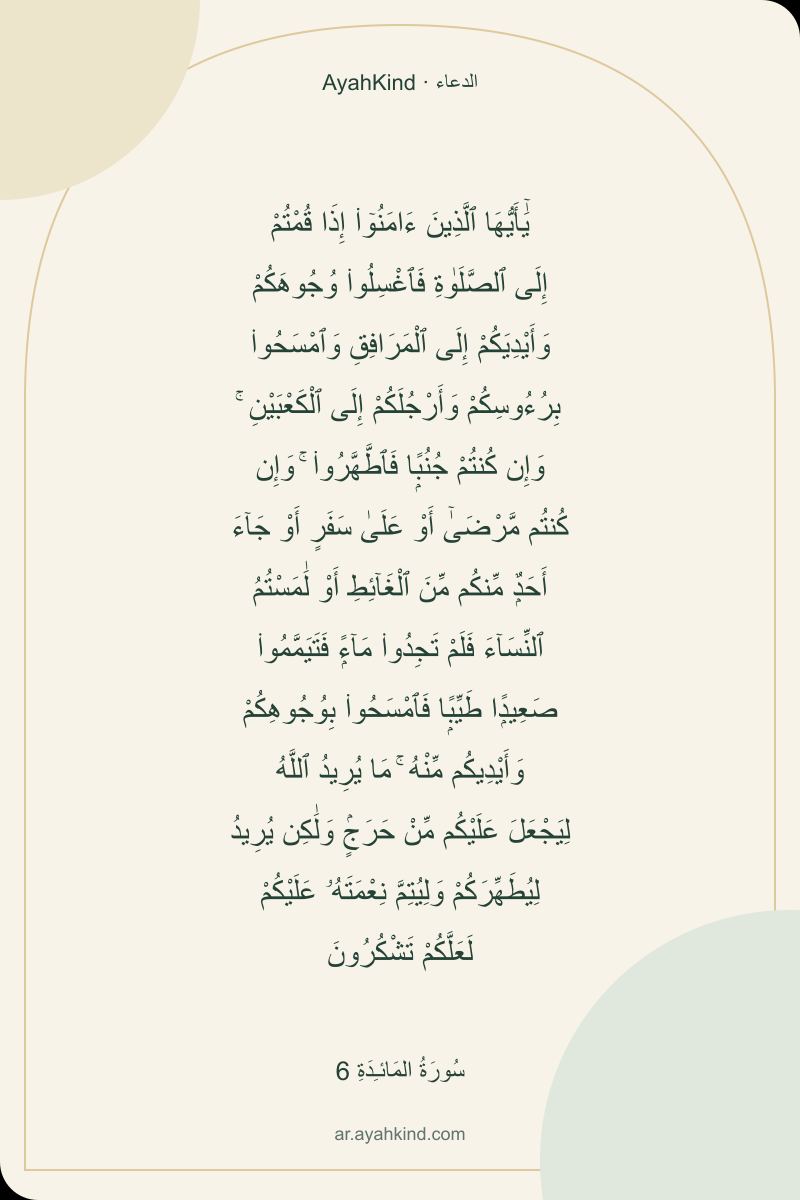 AyahKind · الدعاء
يَٰٓأَيُّهَا ٱلَّذِينَ ءَامَنُوٓا۟ إِذَا قُمْتُمْ
إِلَى ٱلصَّلَوٰةِ فَٱغْسِلُوا۟ وُجُوهَكُمْ
وَأَيْدِيَكُمْ إِلَى ٱلْمَرَافِقِ وَٱمْسَحُوا۟
بِرُءُوسِكُمْ وَأَرْجُلَكُمْ إِلَى ٱلْكَعْبَيْنِ ۚ
وَإِن كُنتُمْ جُنُبًۭا فَٱطَّهَّرُوا۟ ۚ وَإِن
كُنتُم مَّرْضَىٰٓ أَوْ عَلَىٰ سَفَرٍ أَوْ جَآءَ
أَحَدٌۭ مِّنكُم مِّنَ ٱلْغَآئِطِ أَوْ لَٰمَسْتُمُ
ٱلنِّسَآءَ فَلَمْ تَجِدُوا۟ مَآءًۭ فَتَيَمَّمُوا۟
صَعِيدًۭا طَيِّبًۭا فَٱمْسَحُوا۟ بِوُجُوهِكُمْ
وَأَيْدِيكُم مِّنْهُ ۚ مَا يُرِيدُ ٱللَّهُ
لِيَجْعَلَ عَلَيْكُم مِّنْ حَرَجٍۢ وَلَٰكِن يُرِيدُ
لِيُطَهِّرَكُمْ وَلِيُتِمَّ نِعْمَتَهُۥ عَلَيْكُمْ
لَعَلَّكُمْ تَشْكُرُونَ
سُورَةُ المَائـِدَةِ 6
ar.ayahkind.com